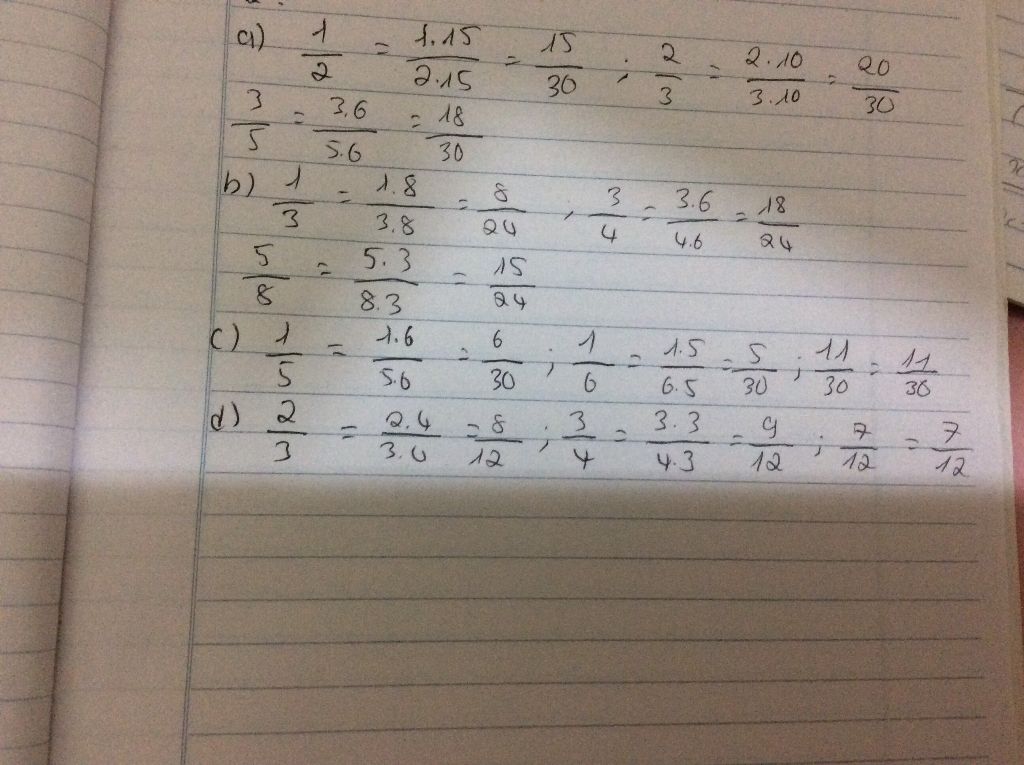 a) 1/2 = 1.15/2.15 = 15/30 ; 2/3 = 2.10/3.10 = 20/30
3/5 = 3.6/5.6 = 18/30
b) 1/3 = 1.8/3.8 = 8/24 , 3/4 = 3.6/4.6 = 18/24
5/8 = 5.3/8.3 = 15/24
c) 1/5 = 1.6/5.6 = 6/30 ; 1/6 = 1.5/6.5 = 5/30 ; 11/30 = 11/30
d) 2/3 = 2.4/3.4 = 8/12 ; 3/4 = 3.3/4.3 = 9/12 ; 7/12 = 7/12